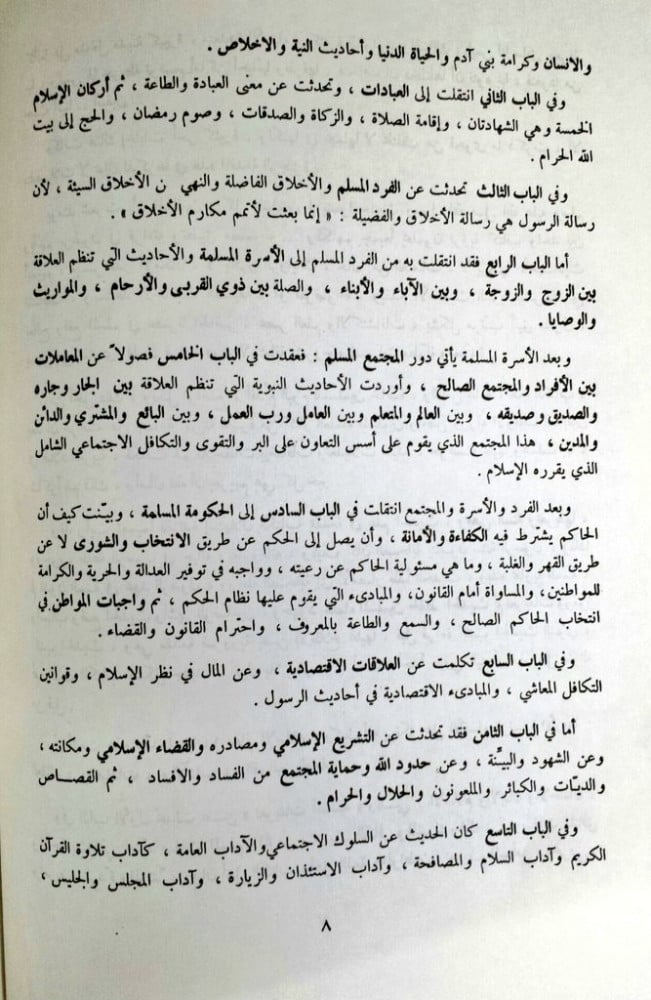 والانسان وكرامة بني آدم والحياة الدنيا وأحاديث النية والاخلاص .
وفي الباب الثاني انتقلت إلى العبادات ، وتحدثت عن معنى العبادة والطاعة ، ثم أركان الإسلام
الخمسة وهي الشهادتان ، وإقامة الصلاة ، والزكاة والصدقات ، وصوم رمضان ، والحج إلى بيت
الله الحرام .
وفي الباب الثالث تحدثت عن الفرد المسلم والأخلاق الفاضلة والنهي ن الأخلاق السيئة ، لأن
رسالة الرسول هي رسالة الأخلاق والفضيلة : « إنما بعثت لأتمم مكارم الأخلاق » .
أما الباب الرابع فقد انتقلت به من الفرد المسلم إلى الأسرة المسلمة والأحاديث التي تنظم العلاقة
بين الزوج والزوجة ، وبين الآباء والأبناء ، والصلة بين ذوي القربى والأرحام ، والمواريث
والوصايا .
وبعد الأسرة المسلمة يأتي دور المجتمع المسلم : فعقدت في الباب الخامس فصولاً عن المعاملات
بين الأفراد والمجتمع الصالح ، وأوردت الأحاديث النبوية التي تنظم العلاقة بين الجار وجاره
والصديق وصديقه ، وبين العالم والمتعلم وبين العامل ورب العمل ، وبين البائع والمشتري والدائن
والمدين ، هذا المجتمع الذي يقوم على أسس التعاون على البر والتقوى والتكافل الاجتماعي الشامل
الذي يقرره الإسلام .
وبعد الفرد والأسرة والمجتمع انتقلت في الباب السادس إلى الحكومة المسلمة ، وبيّنت كيف أن
الحاكم يشترط فيه الكفاءة والأمانة ، وأن يصل إلى الحكم عن طريق الانتخاب والشورى لا عن
طريق القهر والغلبة ، وما هي مسئولية الحاكم عن رعيته ، وواجبه في توفير العدالة والحرية والكرامة
للمواطنين، والمساواة أمام القانون، والمبادىء التي يقوم عليها نظام الحكم ، ثم واجبات المواطن في
انتخاب الحاكم الصالح ، والسمع والطاعة بالمعروف ، واحترام القانون والقضاء .
وفي الباب السابع تكلمت عن العلاقات الاقتصادية ، وعن المال في نظر الإسلام ، وقوانين
التكافل المعاشي ، والمبادىء الاقتصادية في أحاديث الرسول .
أما في الباب الثامن فقد تحدثت عن التشريع الإسلامي ومصادره والقضاء الإسلامي ومكانته ،
وعن الشهود والبيّنة ، وعن حدود الله وحماية المجتمع من الفساد والافساد ، ثم القصاص
والديّات والكبائر والملعونون والحلال والحرام .
وفي الباب التاسع كان الحديث عن السلوك الاجتماعي والآداب العامة ، كآداب تلاوة القرآن
الكريم وآداب السلام والمصافحة ، وآداب الاستئذان والزيارة ، وآداب المجلس والجليس ،
٨